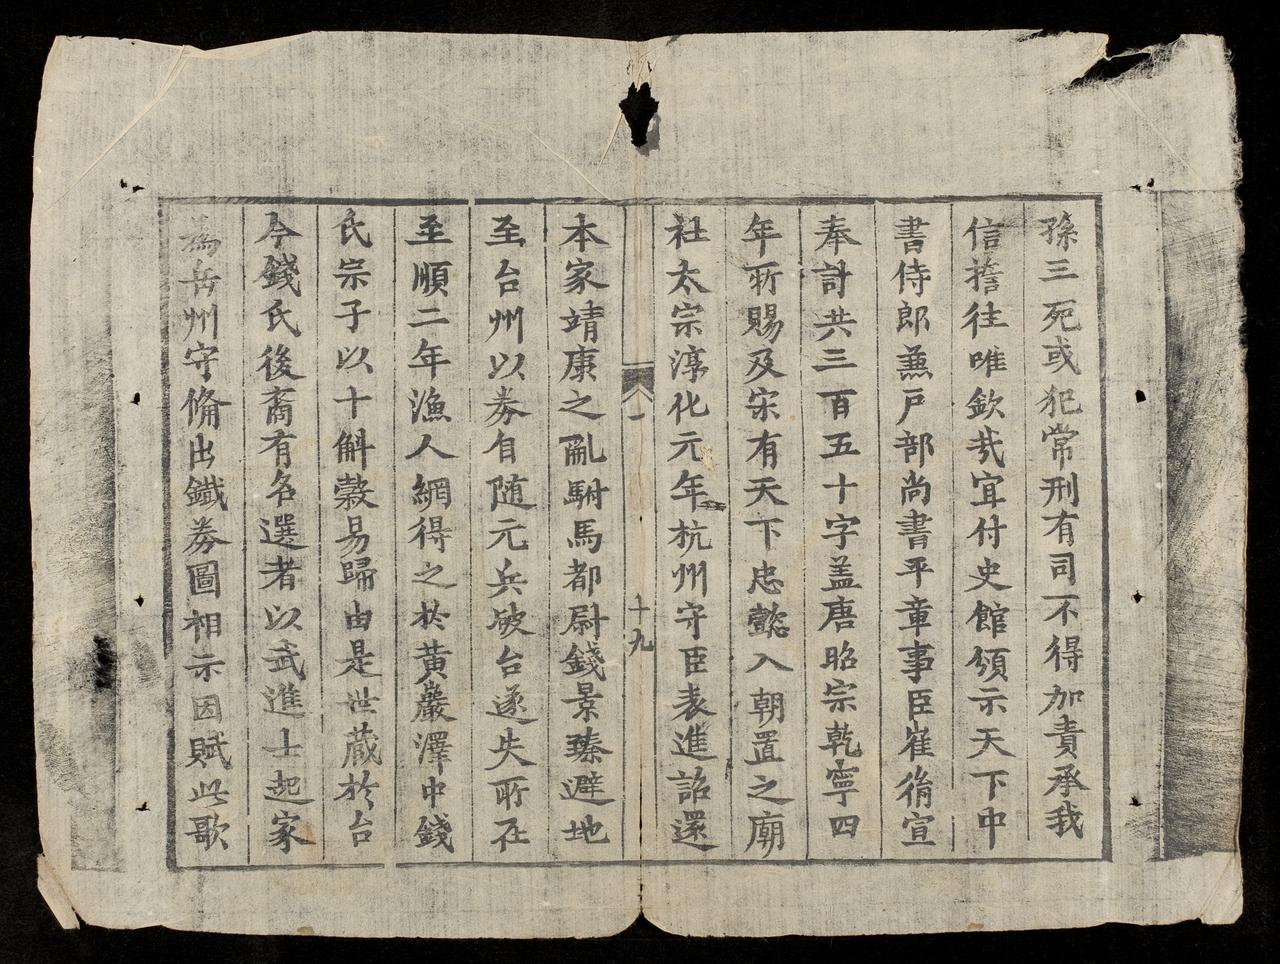 孫三死或犯常刑有司不得加責承我
信擔徃唯欽㢤冝付史館頒示天下中
書侍郎兼戸部尚書平章事臣崔胷宣
奉計共三百五十字盖唐昭宗乾寧四
年所賜及宋有天下忠懿入朝置之廟
社太宗淳化元年杭州守臣表進詔還
一
十九
本家靖康之亂駙馬都尉錢景臻避地
至台州以劵自随元兵破台遂失所在
至順二年漁人網得之於黄巖澤中錢
氏宗子以十斛榖易歸由是世蔵於台
今錢氏後裔有名選者以武進士起家
為岳州守備出鐵劵圖相示因賦此歌